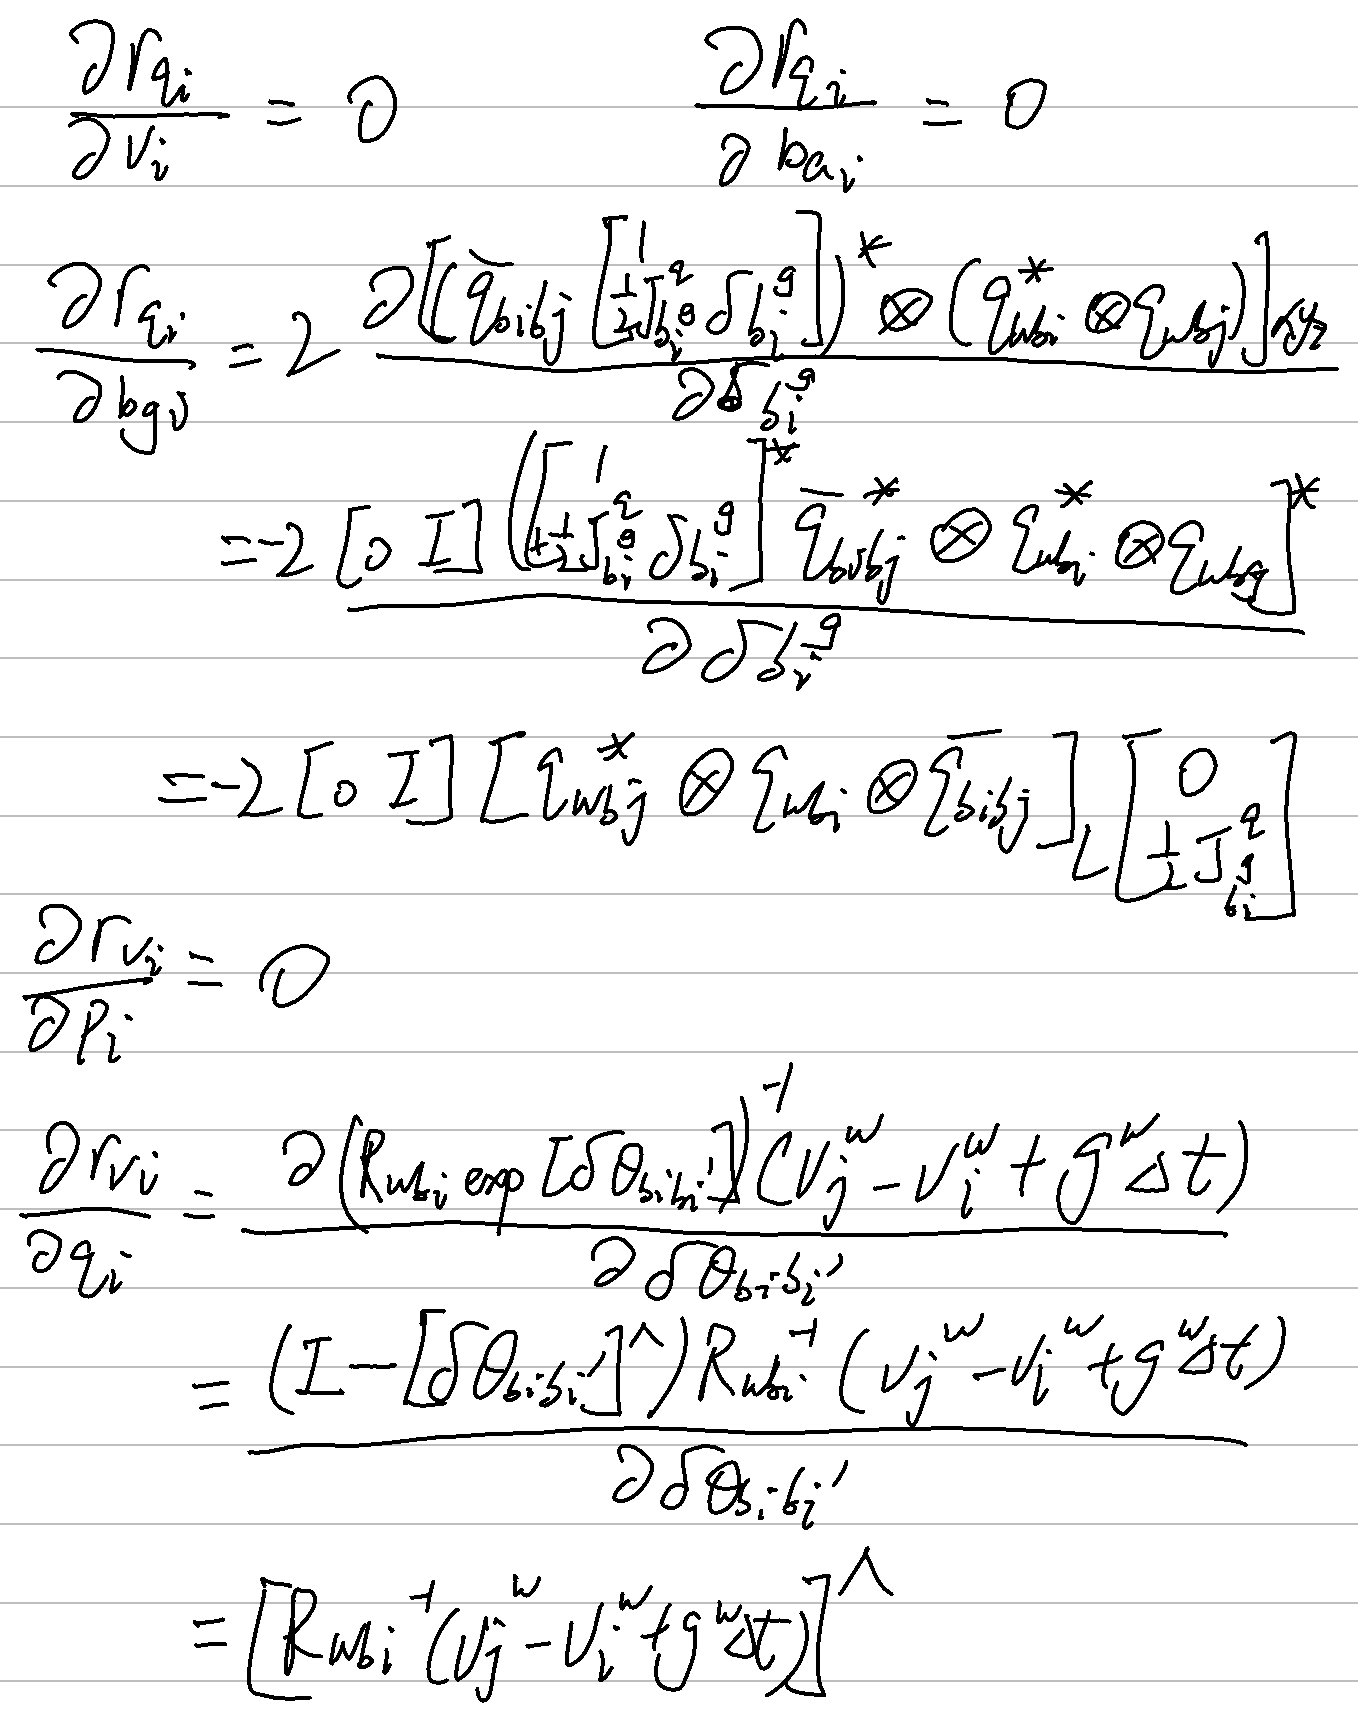 ∂r_{q_i}/∂v_i = 0    ∂r_{q_i}/∂b_{a_i} = 0
∂r_{q_i}/∂b_{g_i} = 2 ∂[(q̄_{b_i b_j} [1; ½ J^q_{b_i^g} δb_i^g])^* ⊗ (q_{wb_i}^* ⊗ q_{wb_j})]_{xyz} / ∂δb_i^g
= -2 [0 I] ([1; ½ J^q_{b_i^g} δb_i^g]^* q̄_{b_i b_j}^* ⊗ q_{wb_i}^* ⊗ q_{wb_j}]^* / ∂δb_i^g
= -2 [0 I] [q_{wb_j}^* ⊗ q_{wb_i} ⊗ q̄_{b_i b_j}]_L [0; ½ J^q_{b_i^g}]
∂r_{v_i}/∂p_i = 0
∂r_{v_i}/∂q_i = ∂(R_{wb_i} exp[δθ_{b_i b_i'}])^{-1} (v_j^w - v_i^w + g^w Δt) / ∂δθ_{b_i b_i'}
= (I - [δθ_{b_i b_i'}]^∧) R_{wb_i}^{-1} (v_j^w - v_i^w + g^w Δt) / ∂δθ_{b_i b_i'}
= [R_{wb_i}^{-1} (v_j^w - v_i^w + g^w Δt)]^∧